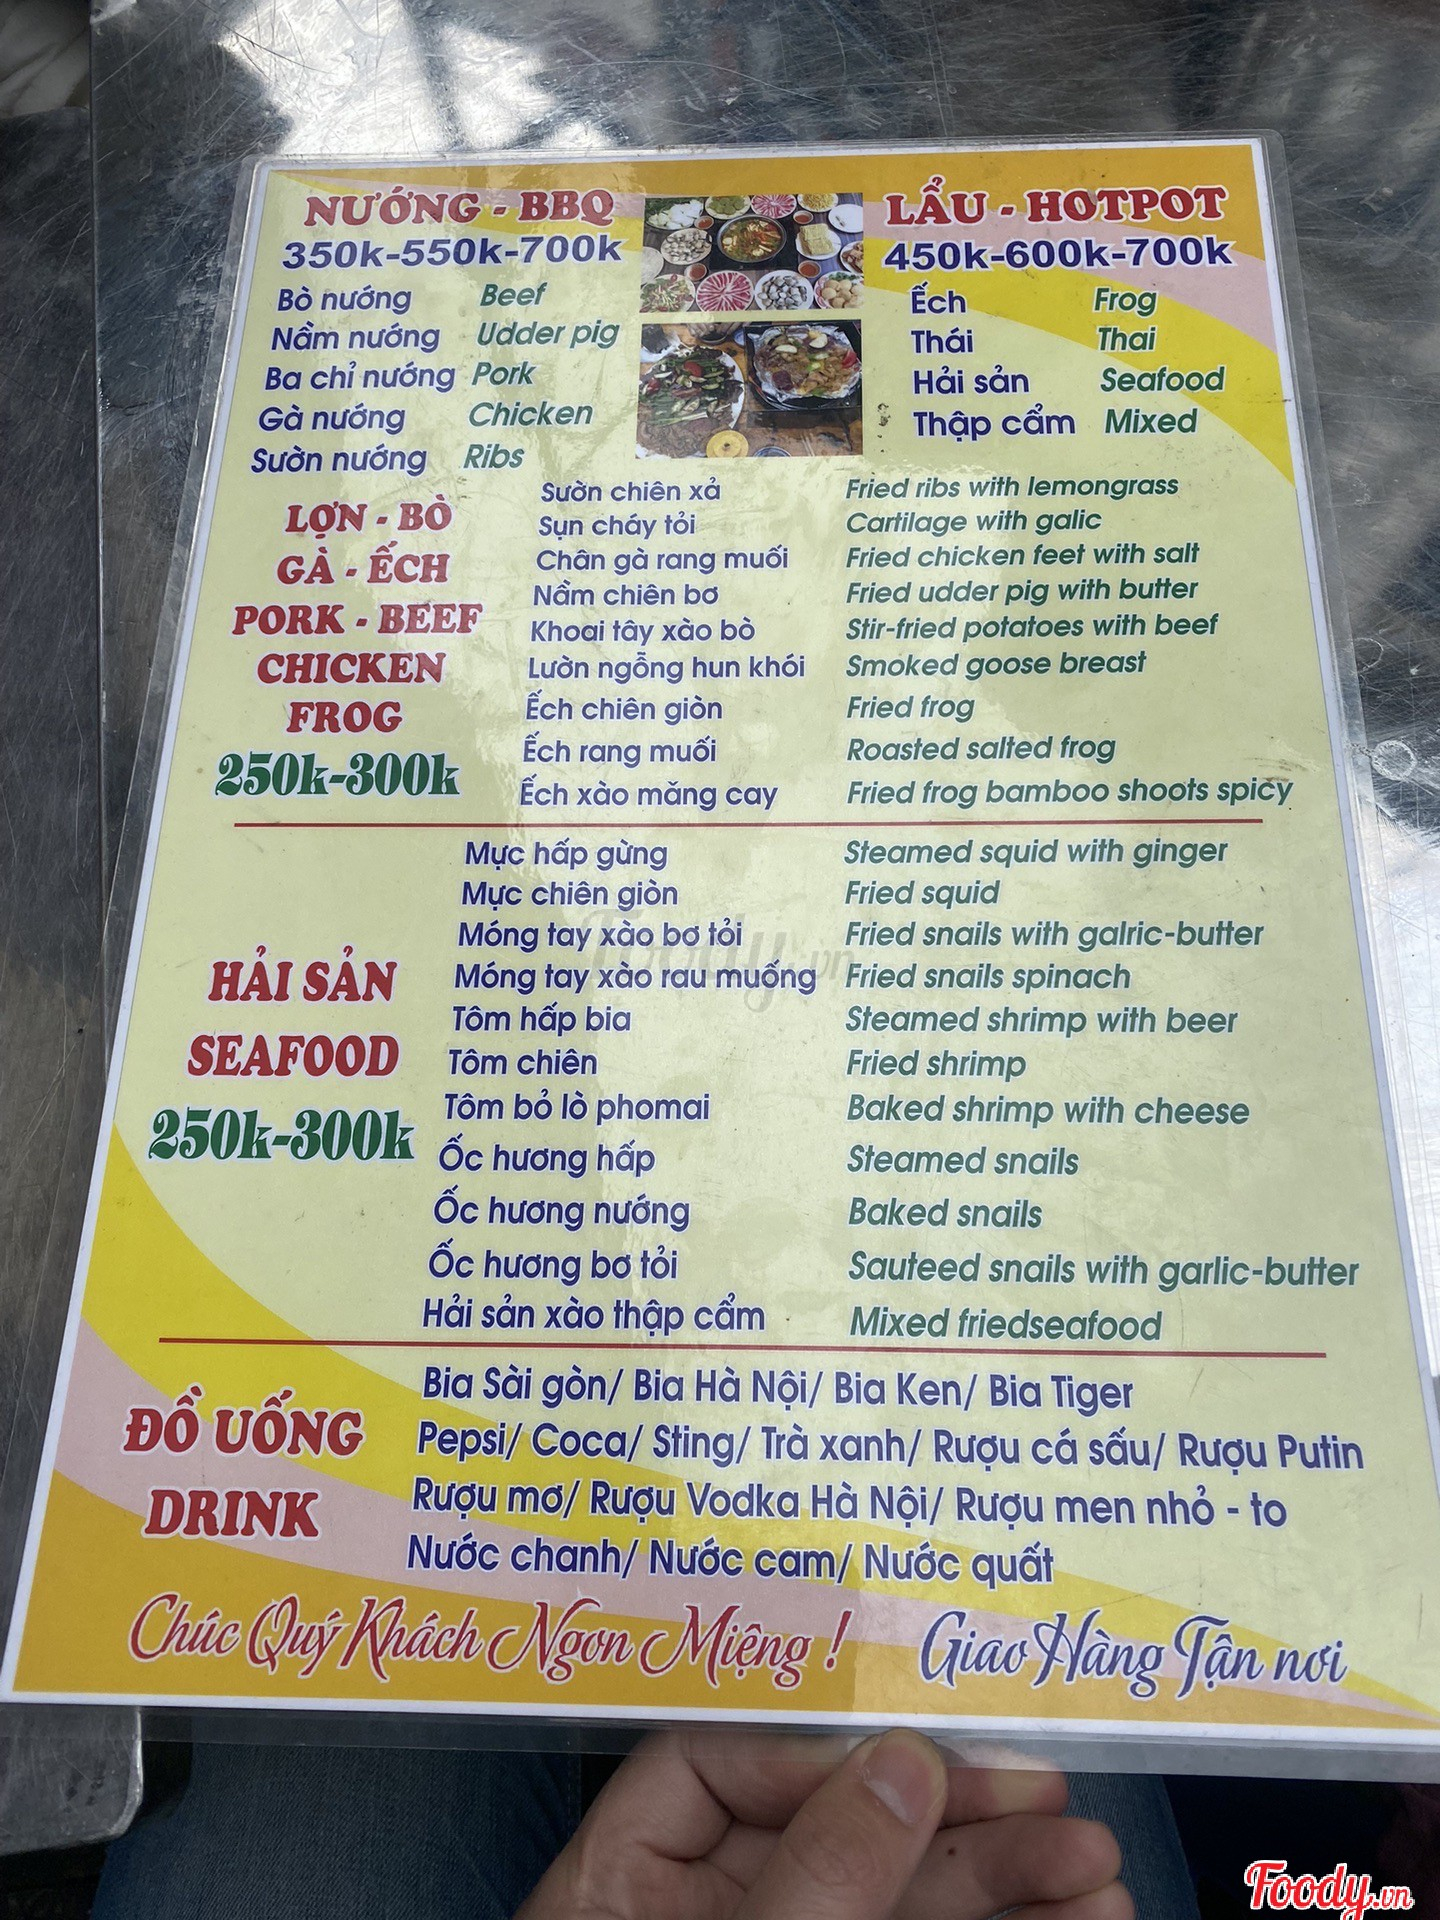 NƯỚNG - BBQ
350k-550k-700k
Bò nướng Beef
Nầm nướng Udder pig
Ba chỉ nướng Pork
Gà nướng Chicken
Sườn nướng Ribs
LẨU - HOTPOT
450k-600k-700k
Ếch Frog
Thái Thai
Hải sản Seafood
Thập cẩm Mixed
LỢN - BÒ
GÀ - ẾCH
PORK - BEEF
CHICKEN
FROG
250k-300k
Sườn chiên xả Fried ribs with lemongrass
Sụn cháy tỏi Cartilage with galic
Chân gà rang muối Fried chicken feet with salt
Nầm chiên bơ Fried udder pig with butter
Khoai tây xào bò Stir-fried potatoes with beef
Lườn ngỗng hun khói Smoked goose breast
Ếch chiên giòn Fried frog
Ếch rang muối Roasted salted frog
Ếch xào măng cay Fried frog bamboo shoots spicy
HẢI SẢN
SEAFOOD
250k-300k
Mực hấp gừng Steamed squid with ginger
Mực chiên giòn Fried squid
Móng tay xào bơ tỏi Fried snails with galric-butter
Móng tay xào rau muống Fried snails spinach
Tôm hấp bia Steamed shrimp with beer
Tôm chiên Fried shrimp
Tôm bỏ lò phomai Baked shrimp with cheese
Ốc hương hấp Steamed snails
Ốc hương nướng Baked snails
Ốc hương bơ tỏi Sauteed snails with garlic-butter
Hải sản xào thập cẩm Mixed friedseafood
ĐỒ UỐNG
DRINK
Bia Sài gòn/ Bia Hà Nội/ Bia Ken/ Bia Tiger
Pepsi/ Coca/ Sting/ Trà xanh/ Rượu cá sấu/ Rượu Putin
Rượu mơ/ Rượu Vodka Hà Nội/ Rượu men nhỏ - to
Nước chanh/ Nước cam/ Nước quất
Chúc Quý Khách Ngon Miệng ! Giao Hàng Tận nơi
Foody.vn
Foody.vn